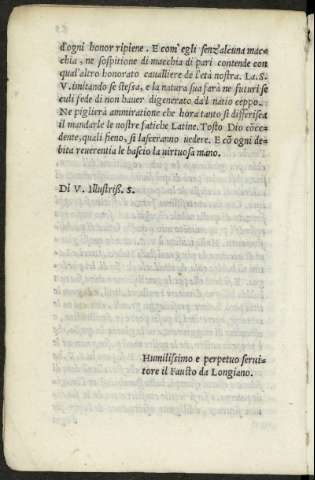 d'ogni honor ripiene. E com' egli senz'alcuna mac=
chia, ne sospitione di macchia di pari contende con
qual'altro honorato cavalliere de l'età nostra. La. S.
V. imitando se stessa, e la natura sua farà ne futuri se
culi fede di non hauer digenerato dal natio ceppo.
Ne piglierà ammiratione che hora tanto si differisca
il mandarle le nostre fatiche Latine. Tosto Dio cōce=
dente, quali sieno, si lasceranno uedere. E cō ogni de=
bita reuerentia le bascio la uirtuosa mano.
Di V. Illustriß. S.
Humilissimo e perpetuo serui=
tore il Fausto da Longiano.